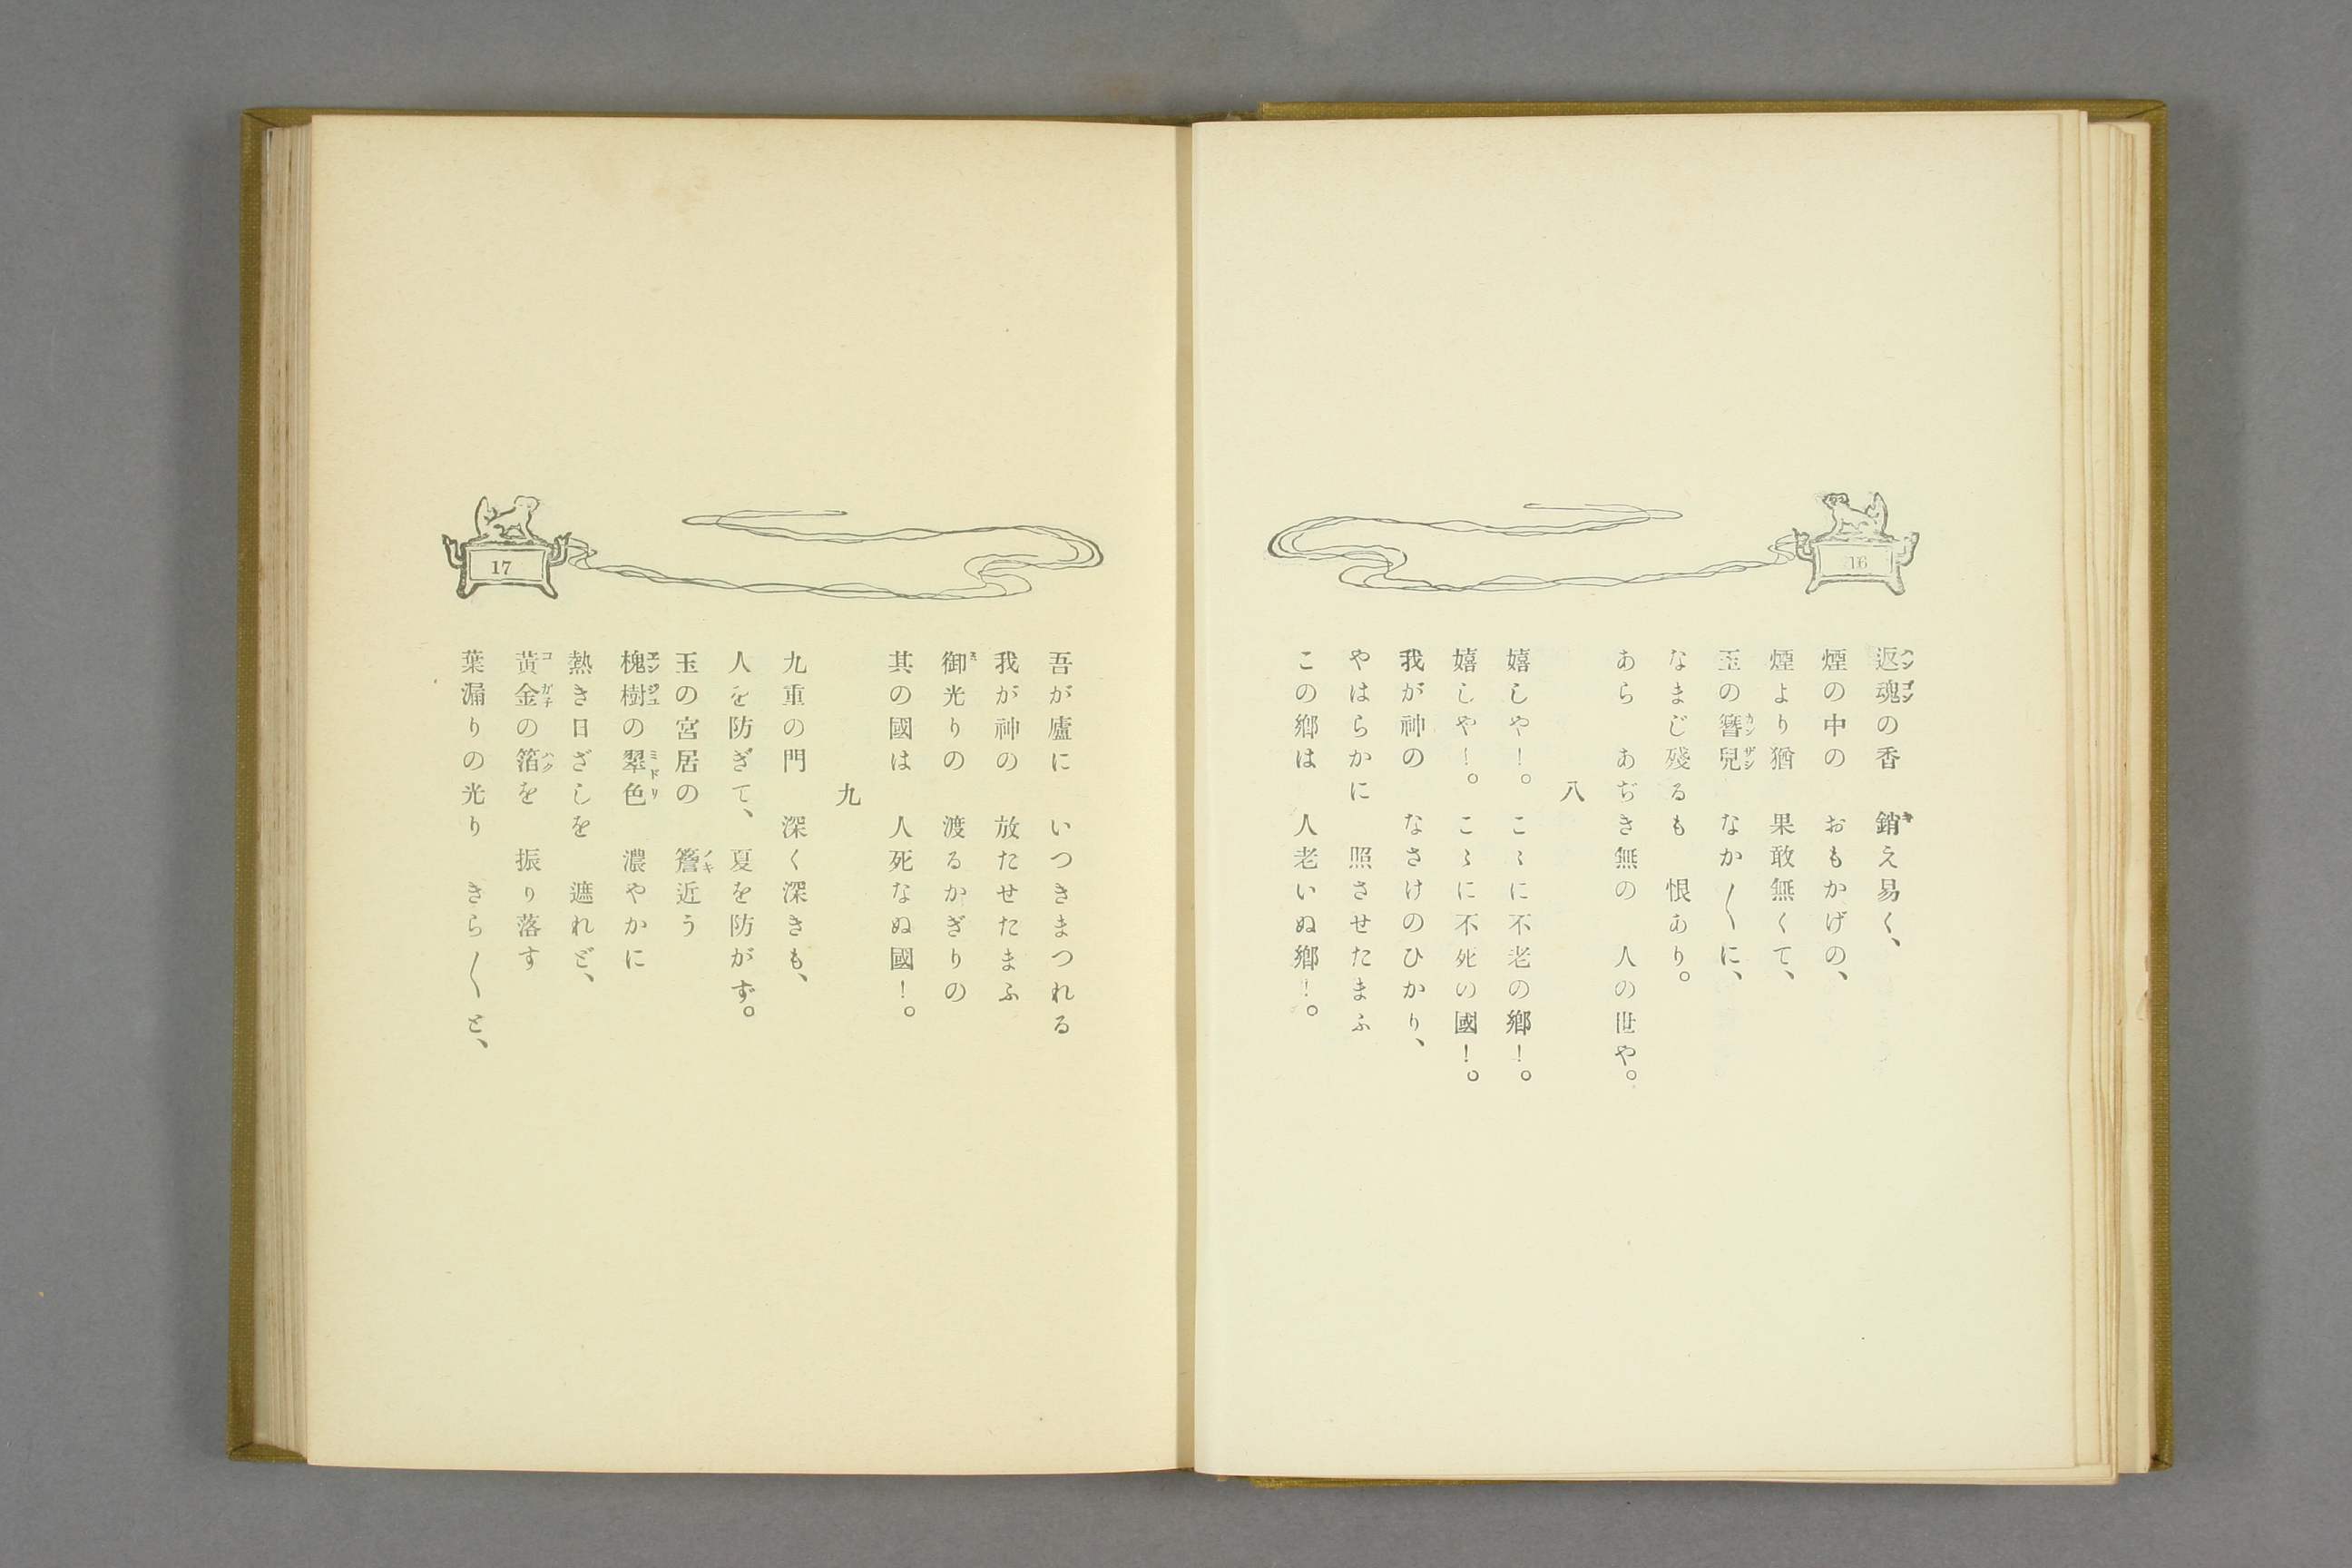 16
返魂の香　銷え易く、
煙の中の　おもかげの、
煙より猶　果敢無くて、
玉の簪兒　なか〱に、
なまじ殘るも　恨あり。
あら　あぢき無の　人の世や。
八
嬉しや！。こゝに不老の鄕！。
嬉しや！。こゝに不死の國！。
我が神の　なさけのひかり、
やはらかに　照させたまふ
この鄕は　人老いぬ鄕！。
17
吾が廬に　いつきまつれる
我が神の　放たせたまふ
御光りの　渡るかぎりの
其の國は　人死なぬ國！。
九
九重の門　深く深きも、
人を防ぎて、　夏を防がず。
玉の宮居の　簷近う
槐樹の翠色　濃やかに
熱き日ざしを　遮れど、
黃金の箔を　振り落す
葉漏りの光り　きら〱と、